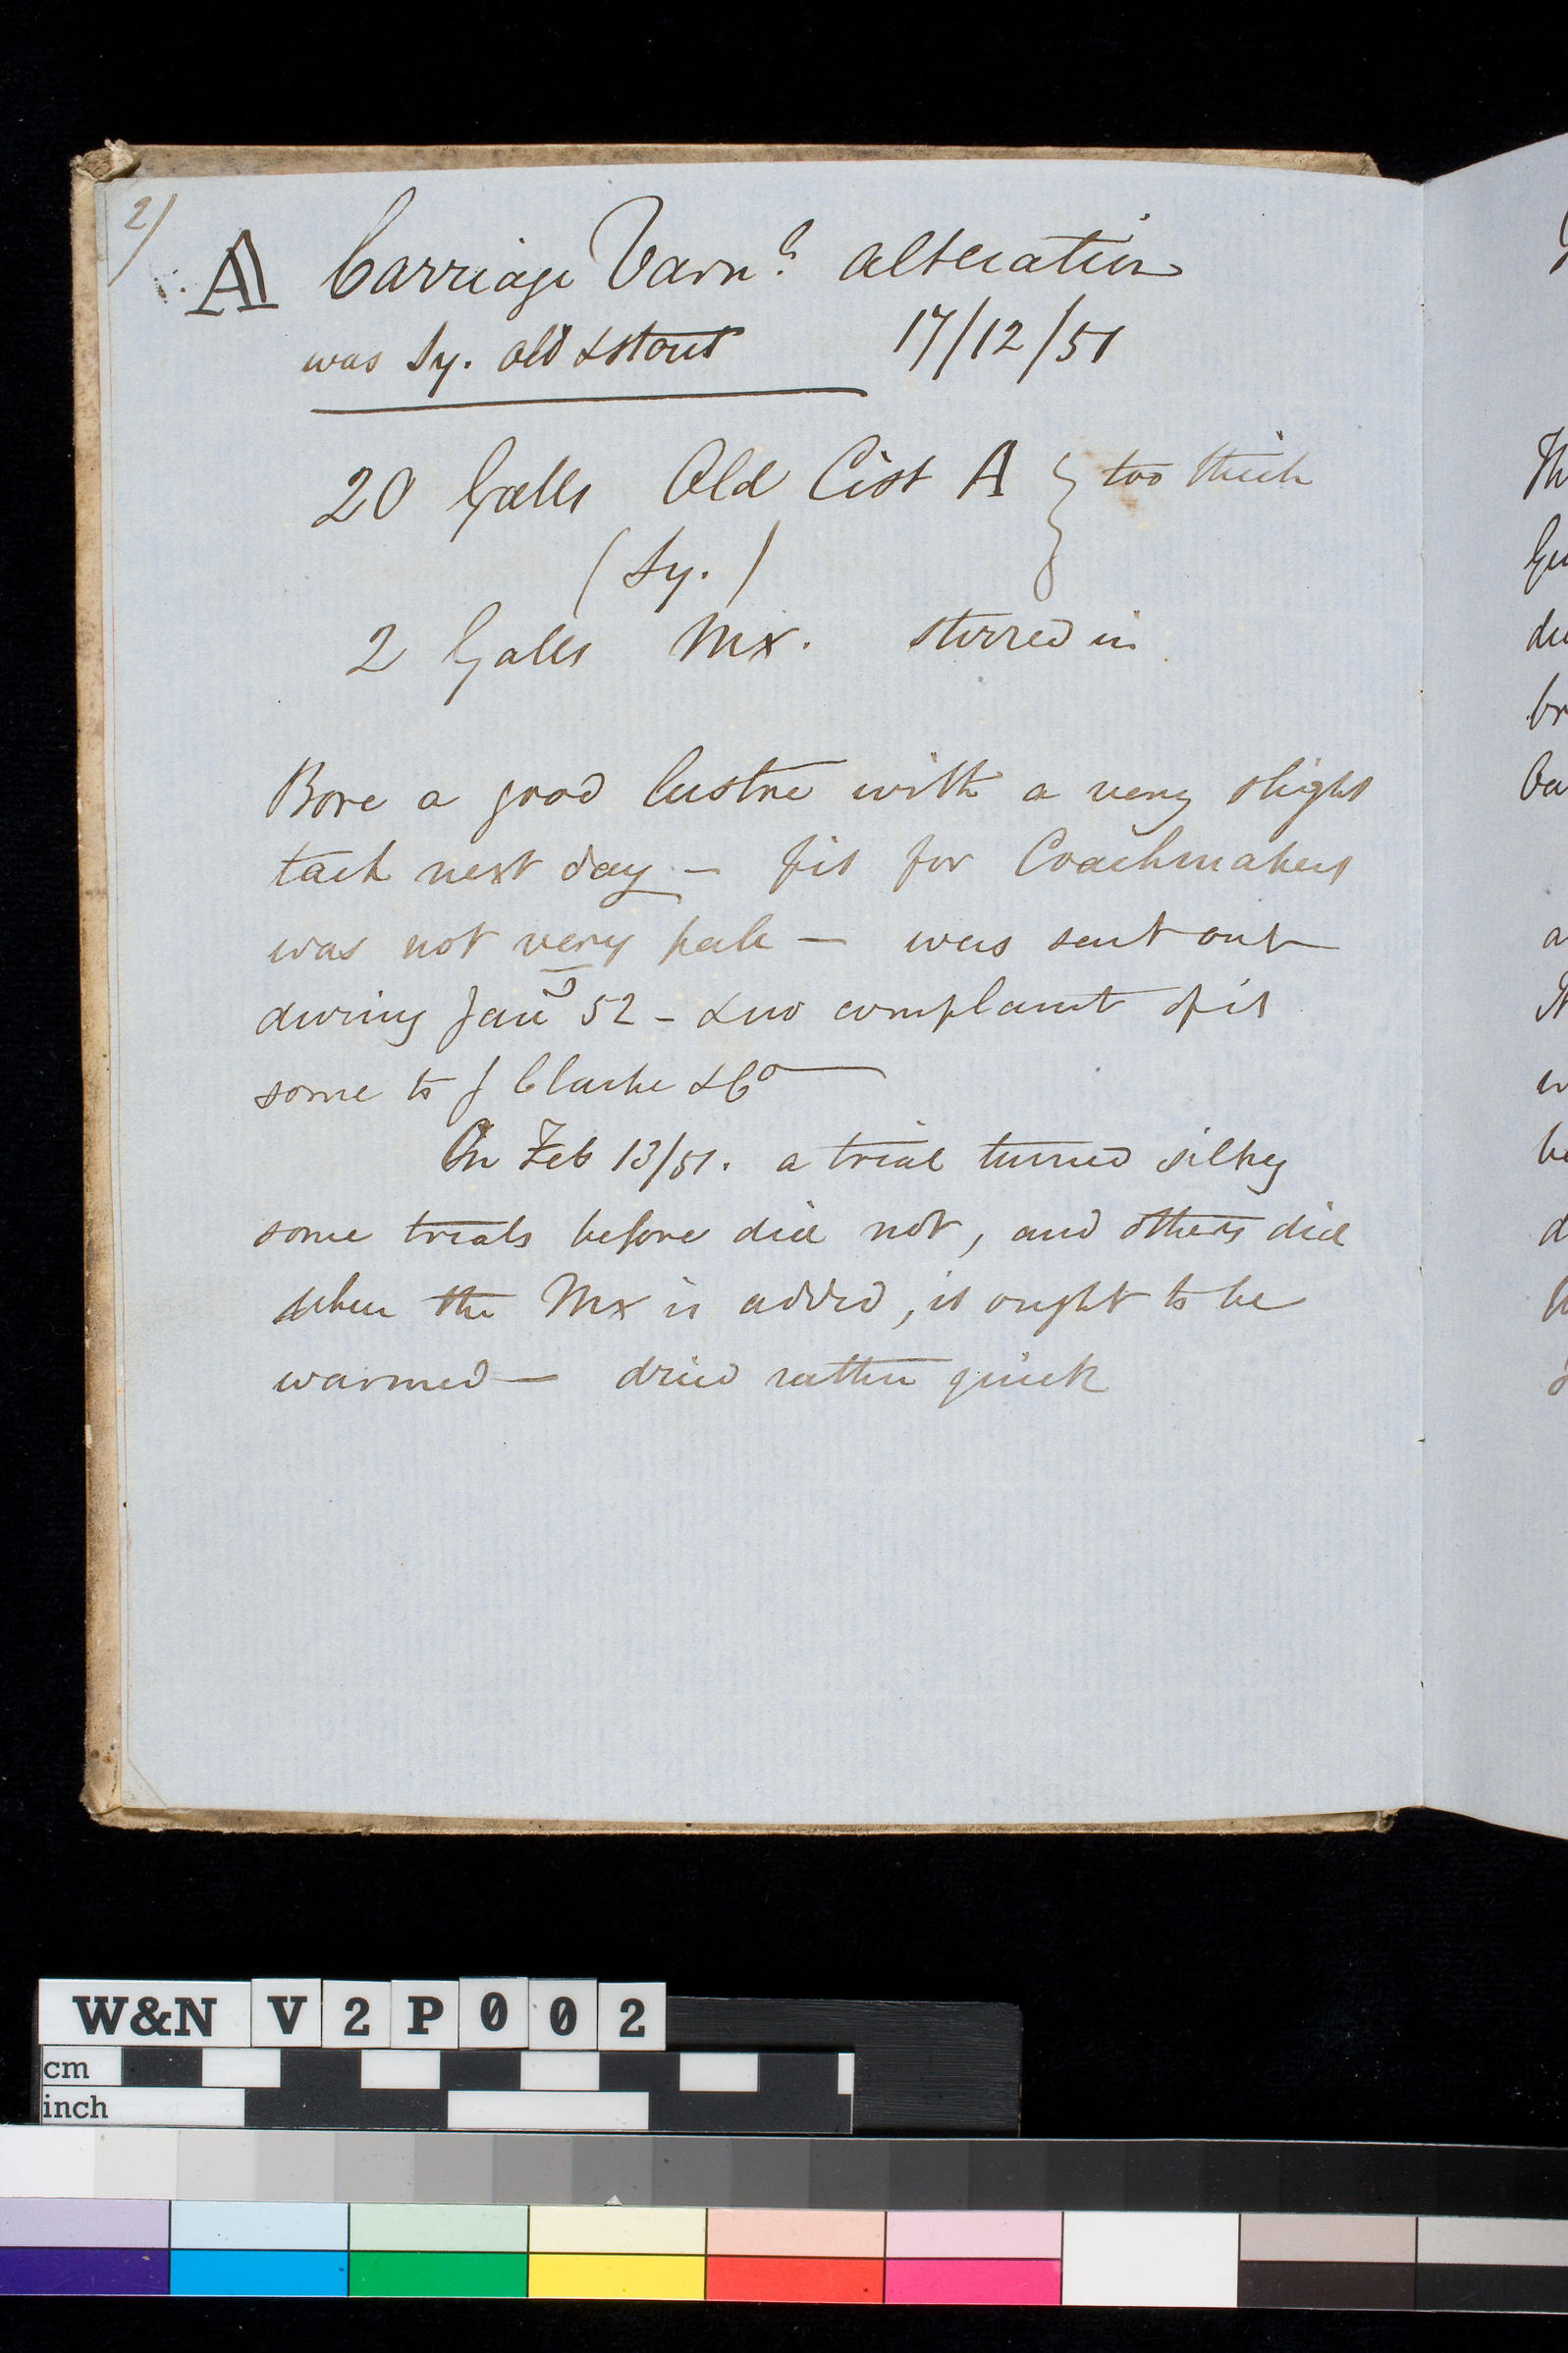 2/
A Carriage Varnh alteration
was Sy. old & stout 17/12/51
20 Galls Old Cist A } too thick
(Sy.)
2 Galls Mx. stirred in
Bore a good lustre with a very slight
tack next day – fit for Coachmakers
was not very pale – was sent out
during Jany 52 – & no complaint of it
some to J Clarke & Co
On Feb 13/51. a trial turned silky
some trials before did not, and others did
when the Mx is added, it ought to be
warmed – dried rather quick
Th
br
W&N V2P002
cm
inch